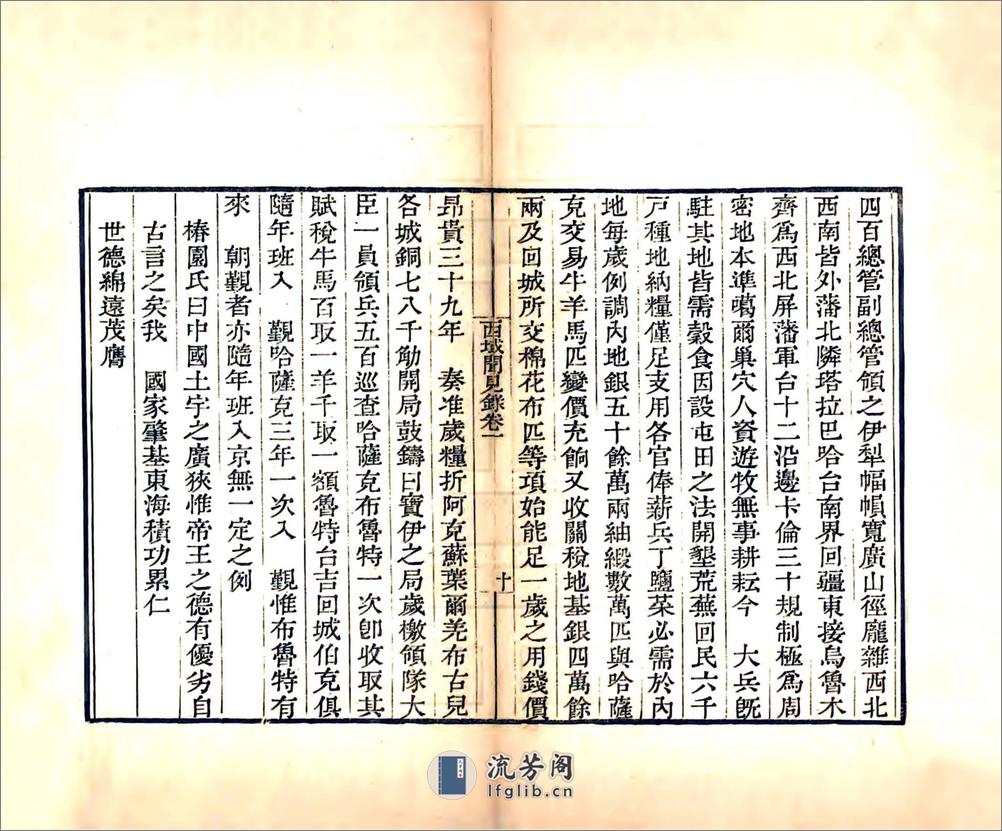 四百總管副總管領之伊犁幅𢄙寬廣山徑龐雜西北
西南皆外藩北隣塔拉巴哈台南界回疆東接烏魯木
齊爲西北屏藩軍台十二沿邊卡倫三十規制極爲周
密地本準噶爾巢穴人資遊牧無事耕耘今　大兵既
駐其地皆需穀食因設屯田之法開墾荒蕪回民六千
戸種地納糧僅足支用各官俸薪兵丁鹽菜必需於內
地每歲例調內地銀五十餘萬兩紬緞數萬匹與哈薩
克交易牛羊馬匹變價充餉又收關稅地基銀四萬餘
兩及回城所交棉花布匹等項始能足一歲之用錢價
西域聞見錄卷一
十
昂貴三十九年　奏准歲糧折阿克蘇葉爾羌布古兒
各城銅七八千觔開局鼓鑄曰寶伊之局歲檄領隊大
臣一員領兵五百巡查哈薩克布魯特一次卽收取其
賦稅牛馬百取一羊千取一額魯特台吉回城伯克俱
隨年班入　覲哈薩克三年一次入　覲惟布魯特有
來　朝覲者亦隨年班入京無一定之例
椿園氏曰中國土宇之廣狹惟帝王之德有優劣自
古言之矣我　國家肇基東海積功累仁
世德綿遠茂膺
流芳阁
lfglib.cn